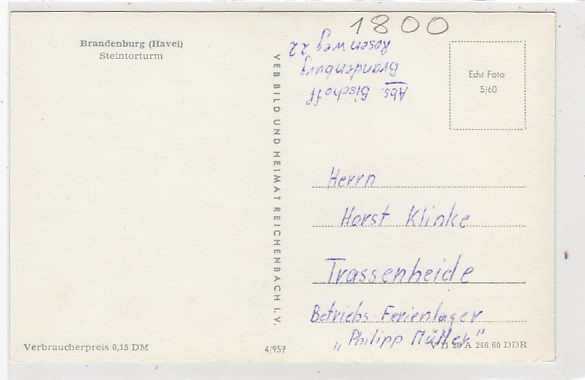 Brandenburg (Havel)
Steintorturm
1800
Abs. Bischoff
Brandenburg
Rosenweg 22
Echt Foto
5/60
VEB BILD UND HEIMAT REICHENBACH I. V.
Herrn
Horst Klinke
Trassenheide
Betriebs-Ferienlager
"Philipp Müller"
Verbraucherpreis 0,15 DM
4/957
A 246 60 DDR